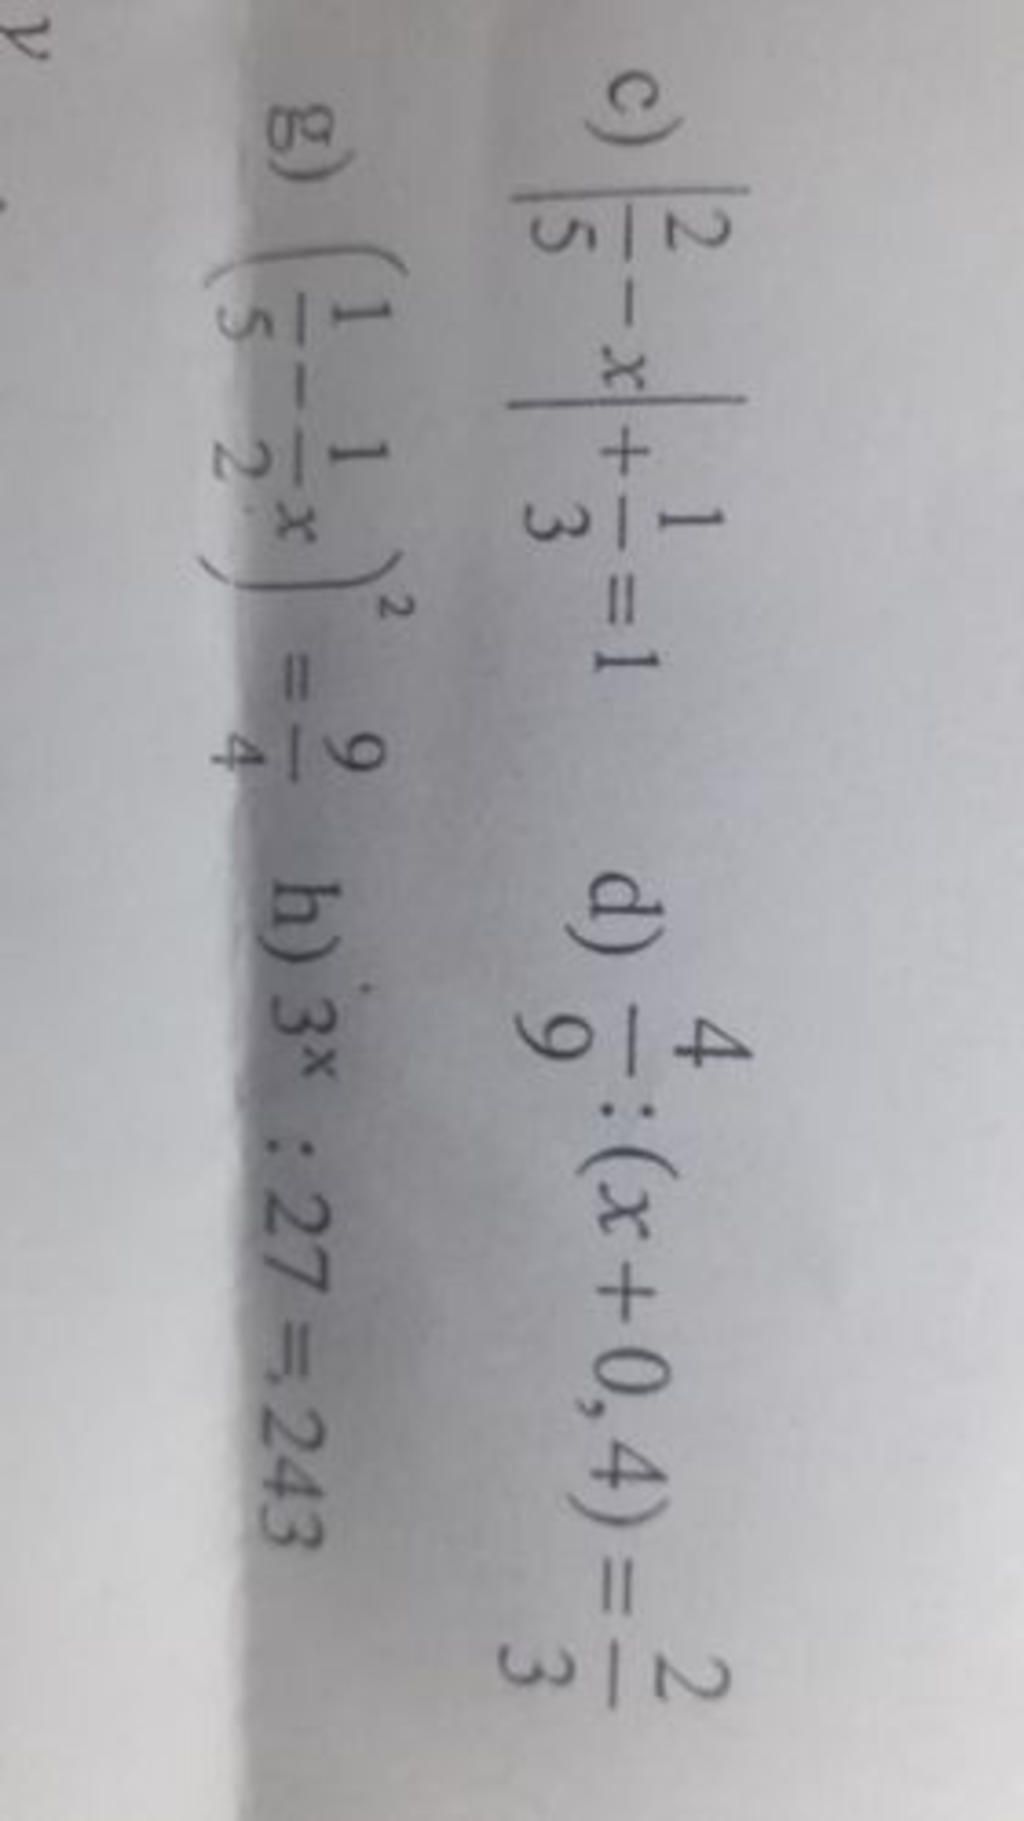 c) |2/5 - x| + 1/3 = 1 d) 4/9 : (x + 0,4) = 2/3
g) (1/5 - 1/2 x)² = 9/4 h) 3ˣ : 27 = 243